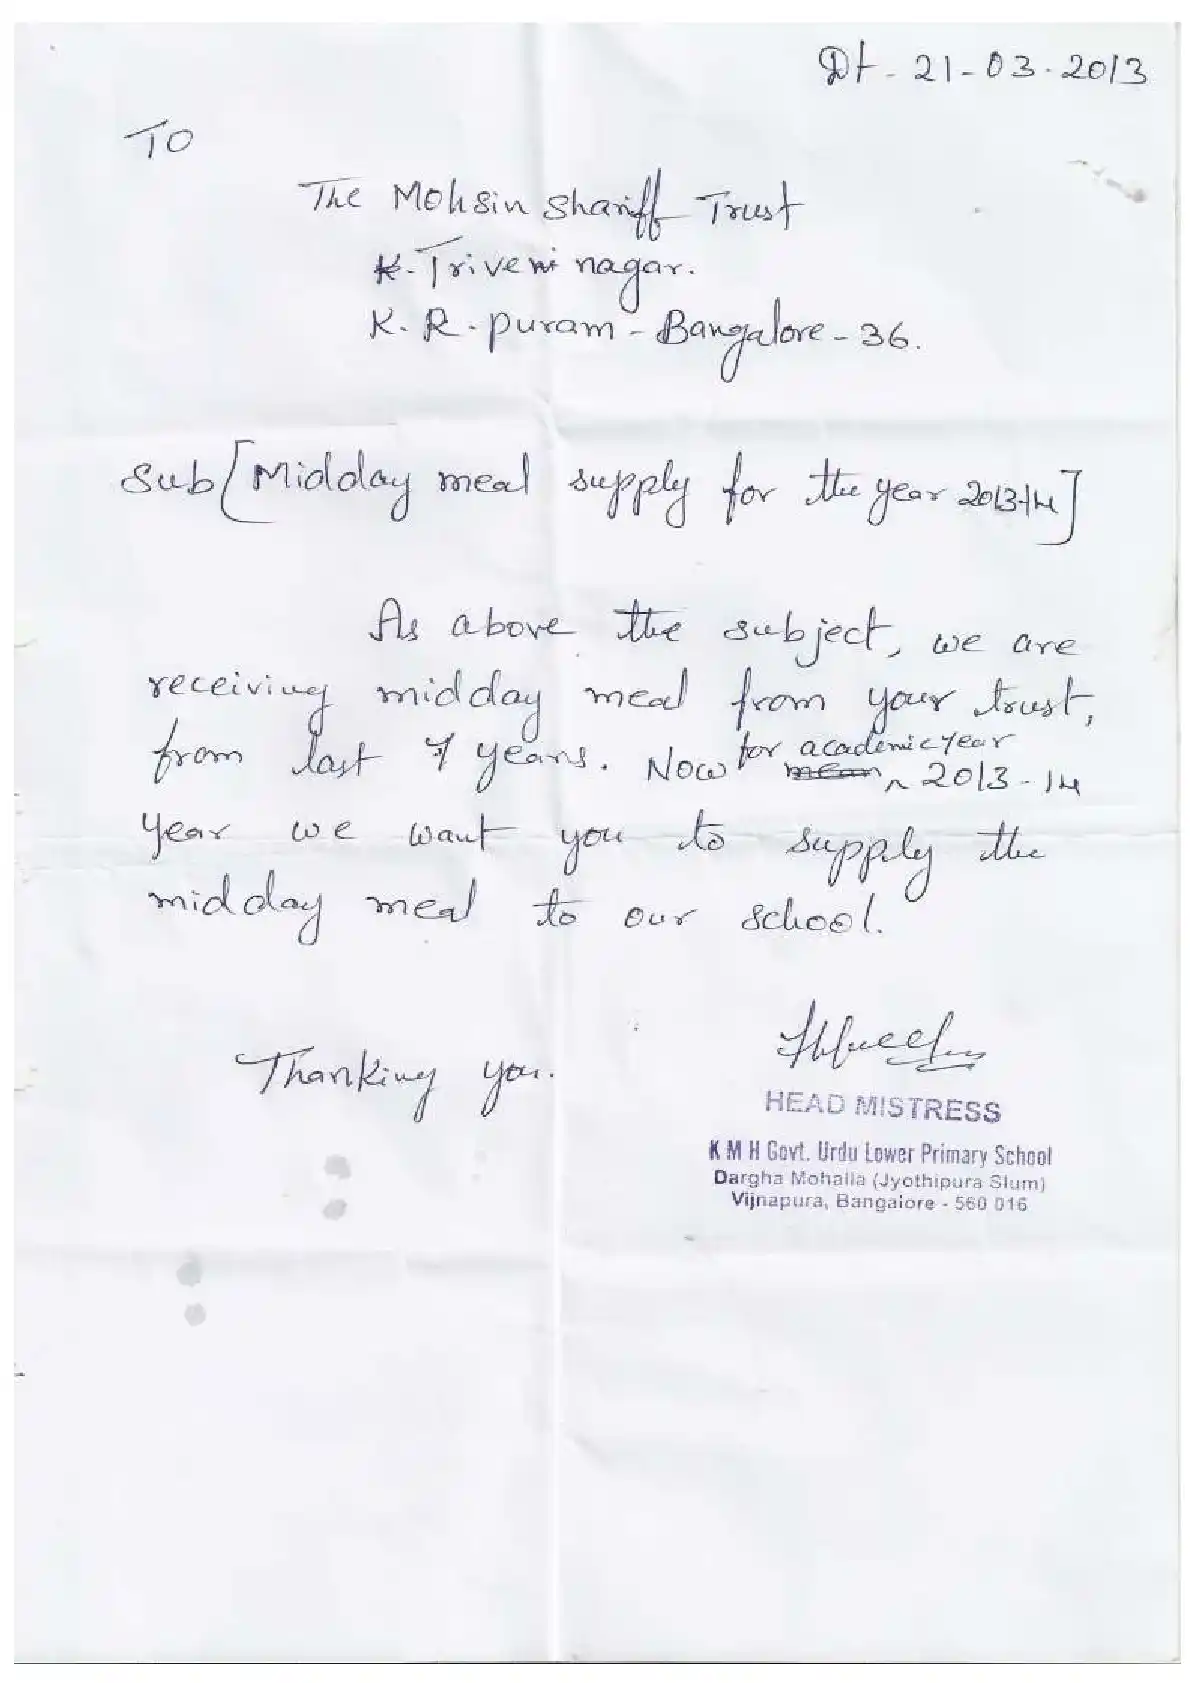 Dt - 21-03-2013
TO
The Mohsin Shariff Trust
K. Triveni nagar.
K. R. puram - Bangalore - 36.
Sub [Midday meal supply for the year 2013-14]
As above the subject, we are
receiving midday meal from your trust,
from last 7 years. Now for academic year 2013-14
year we want you to supply the
midday meal to our school.
Thanking you.
HEAD MISTRESS
K M H Govt. Urdu Lower Primary School
Dargha Mohalla (Jyothipura Slum)
Vijnapura, Bangalore - 560 016